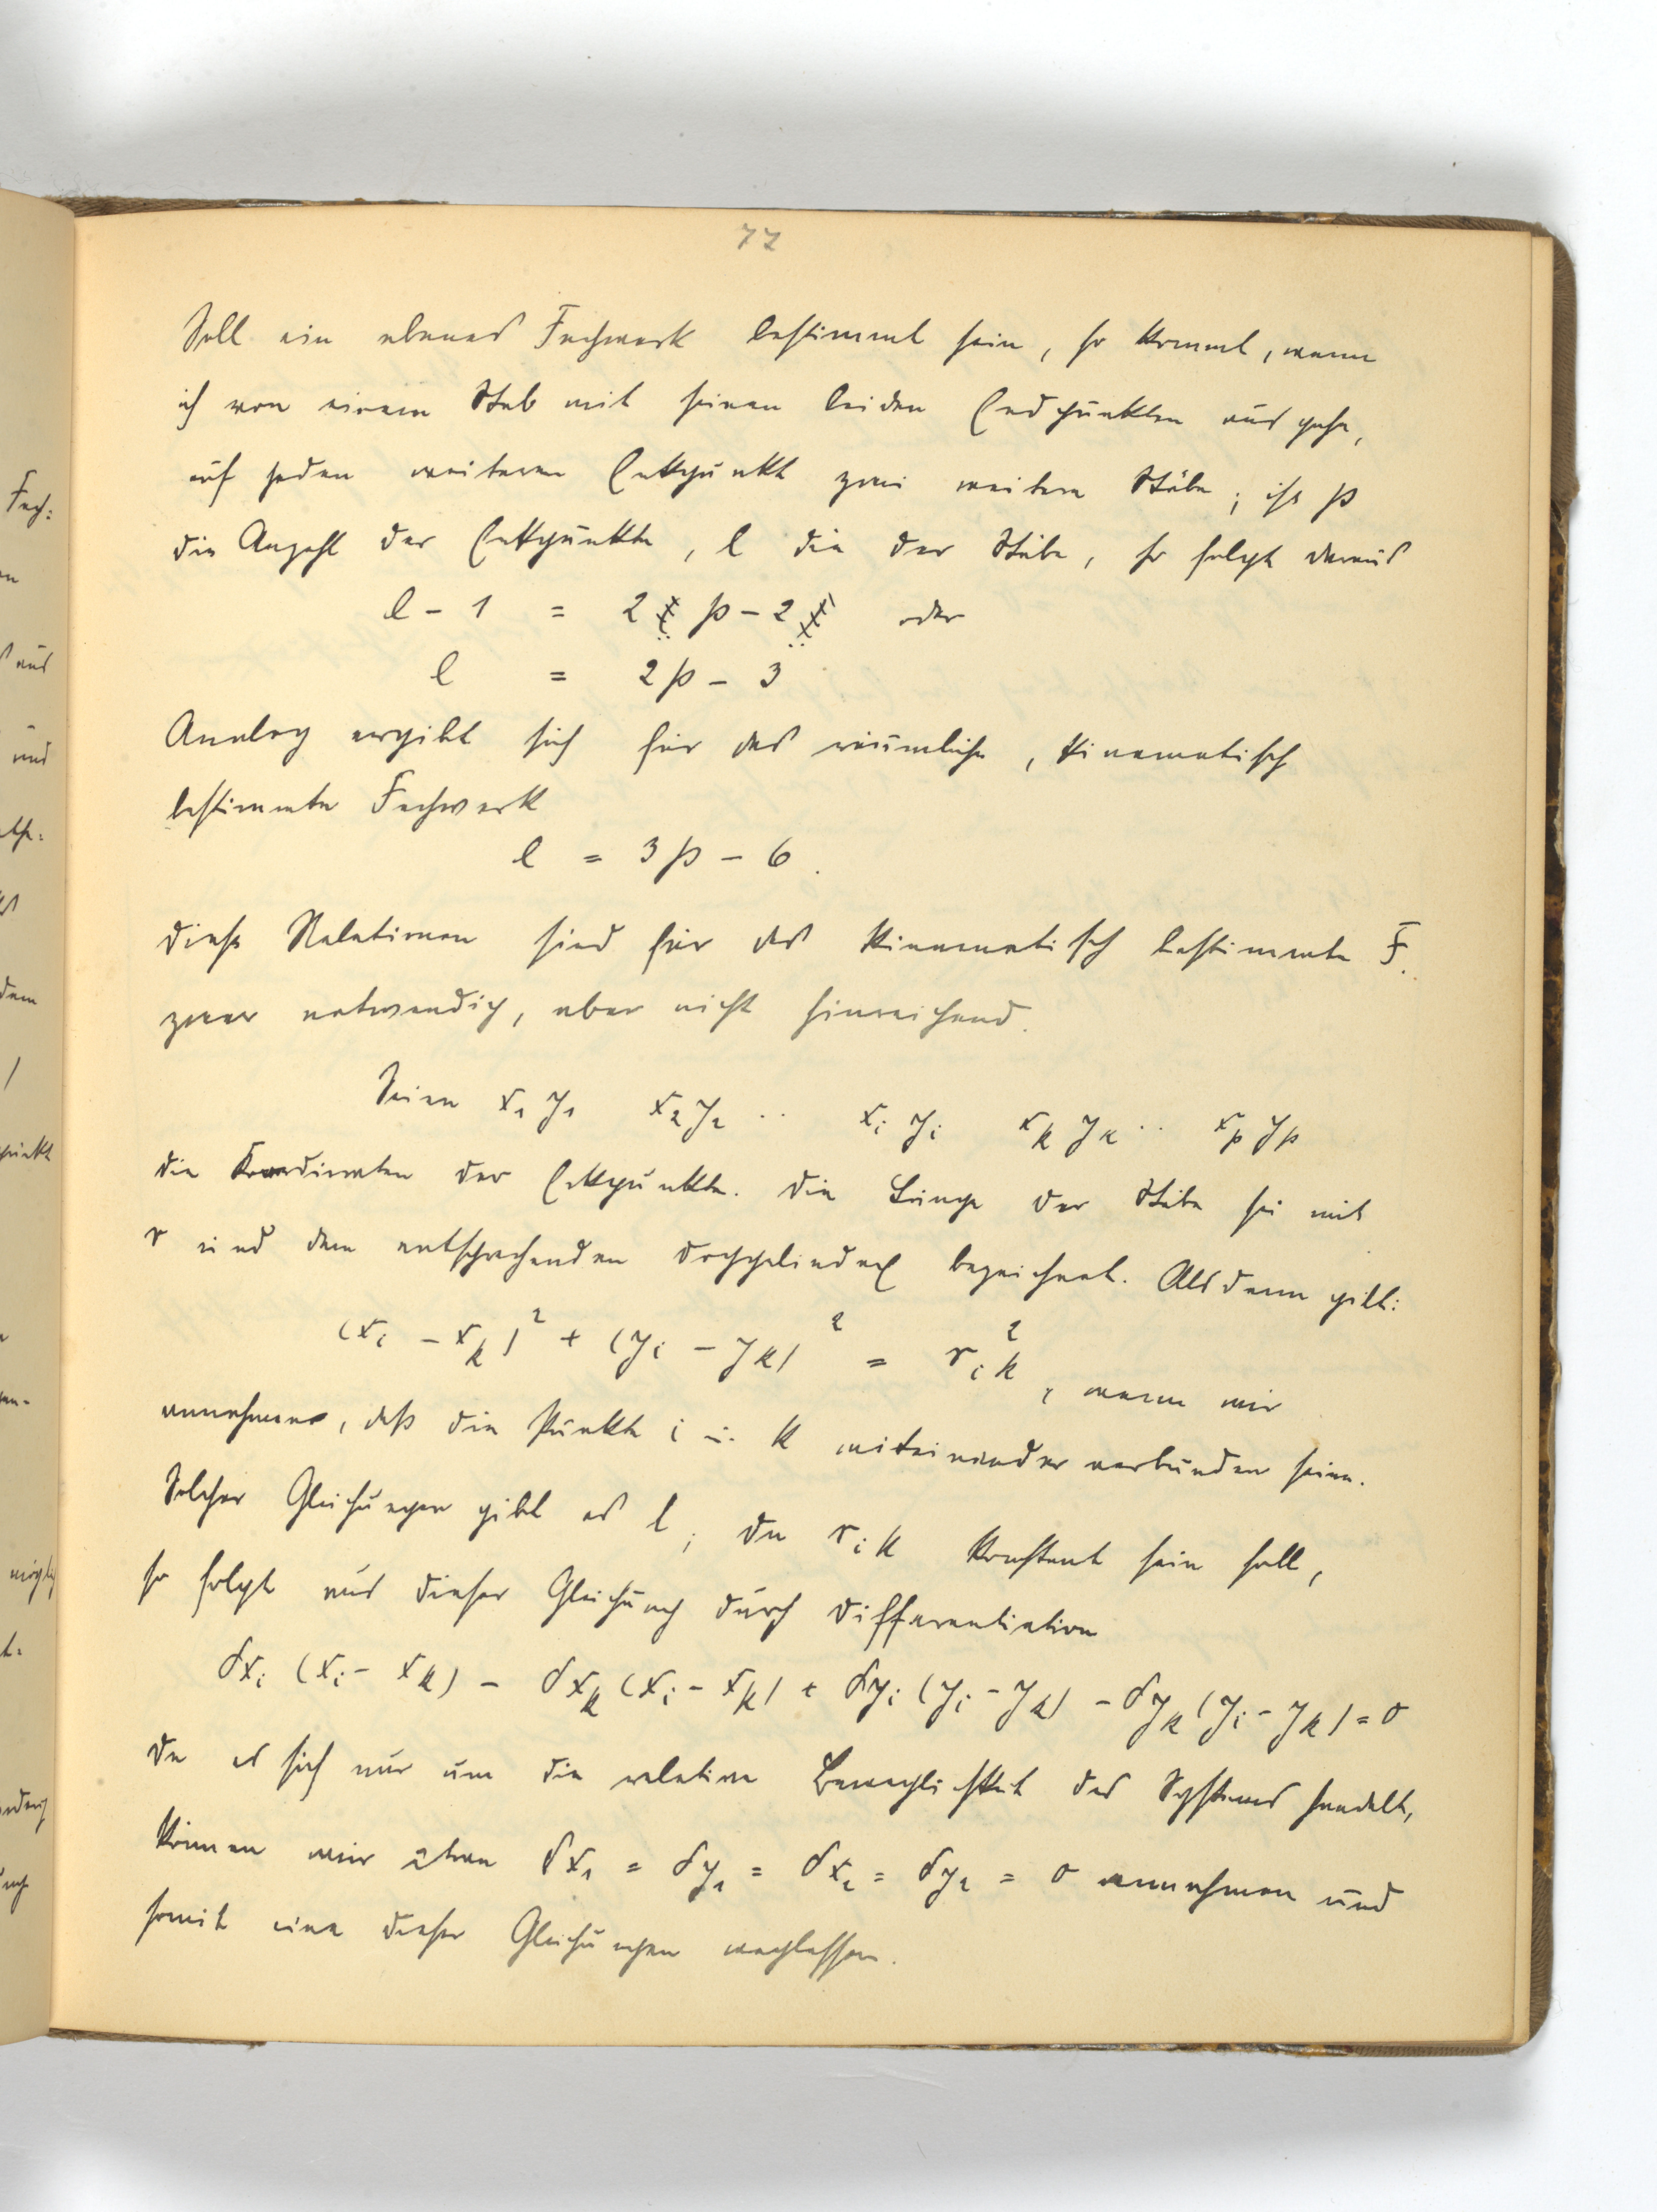 77
Soll ein ebenes Fachwerk bestimmt sein, so kommt, wenn
ich von einem Stab mit seinen beiden Endpunkten ausgehe,
auf jeden weiteren Eckpunkt zwei weitere Stäbe; ist p
die Anzahl der Eckpunkte, l die der Stäbe, so folgt daraus
l - 1 = 2 p - 2 oder
l = 2p - 3
Analog ergibt sich für das räumliche, kinematisch
bestimmte Fachwerk
l = 3p - 6.
Diese Relationen sind für das kinematisch bestimmte F.
zwar notwendig, aber nicht hinreichend.
Seien x₁ y₁ x₂ y₂ .. xᵢ yᵢ xₖ yₖ .. xₚ yₚ
die Koordinaten der Eckpunkte. Die Länge der Stäbe sei mit
r und dem entsprechenden Doppelindex bezeichnet. Alsdann gilt:
(xᵢ - xₖ)² + (yᵢ - yₖ)² = rᵢₖ², wenn wir
annehmen, daß die Punkte i u. k miteinander verbunden seien.
Solcher Gleichungen gibt es l; da rᵢₖ konstant sein soll,
so folgt aus dieser Gleichung durch Differentiation
δxᵢ (xᵢ - xₖ) - δxₖ (xᵢ - xₖ) + δyᵢ (yᵢ - yₖ) - δyₖ (yᵢ - yₖ) = 0
Da es sich nur um die relative Beweglichkeit des Systems handelt,
können wir etwa δx₁ = δy₁ = δx₂ = δy₂ = 0 annehmen und
somit eine dieser Gleichungen weglassen.